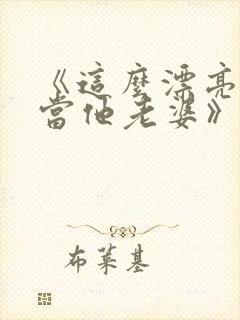 《這麼漂亮
當他老婆》
布萊基